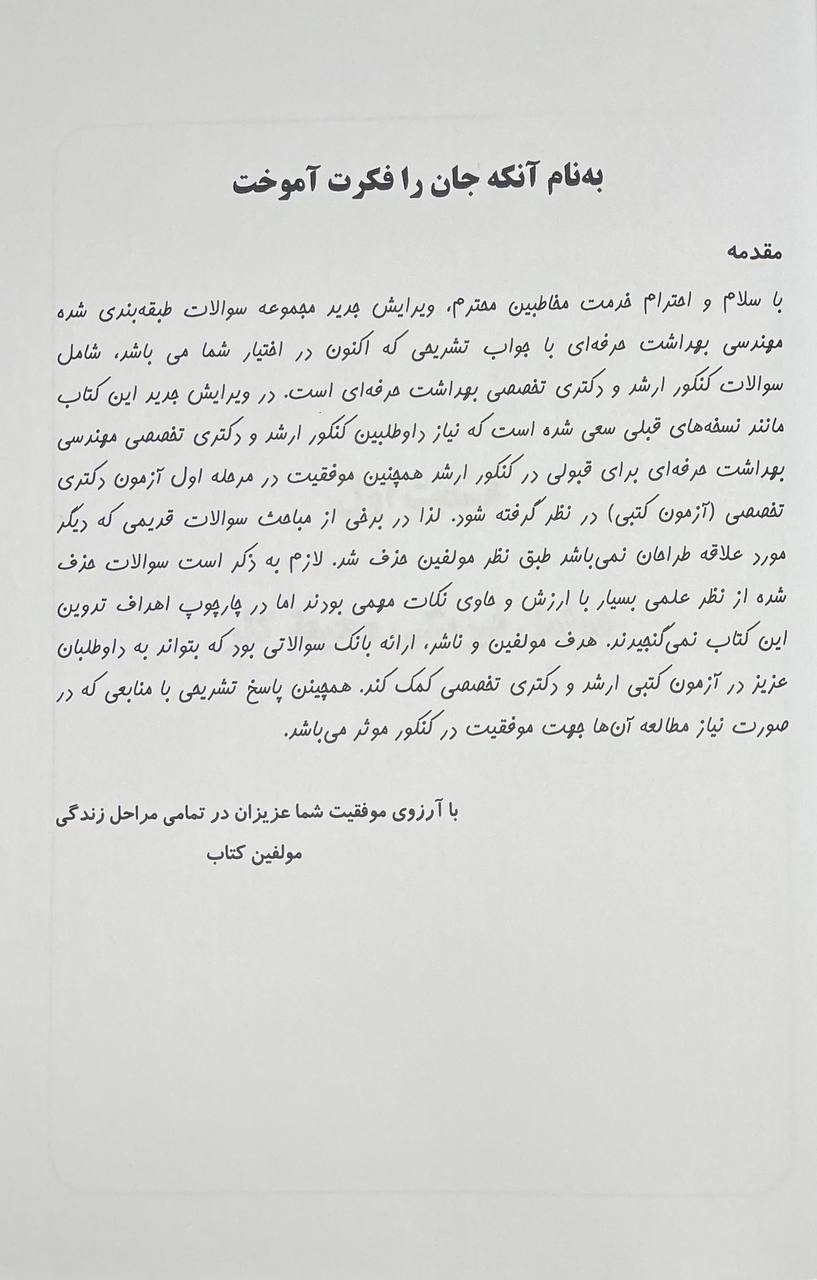 به‌نام آنکه جان را فکرت آموخت
مقدمه
با سلام و احترام خدمت مخاطبین محترم، ویرایش جدید مجموعه سوالات طبقه‌بندی شده
مهندسی بهداشت حرفه‌ای با جواب تشریحی که اکنون در اختیار شما می باشد، شامل
سوالات کنکور ارشد و دکتری تخصصی بهداشت حرفه‌ای است. در ویرایش جدید این کتاب
مانند نسخه‌های قبلی سعی شده است که نیاز داوطلبین کنکور ارشد و دکتری تخصصی مهندسی
بهداشت حرفه‌ای برای قبولی در کنکور ارشد همچنین موفقیت در مرحله اول آزمون دکتری
تخصصی (آزمون کتبی) در نظر گرفته شود. لذا در برخی از مباحث سوالات قدیمی که دیگر
مورد علاقه طراحان نمی‌باشد طبق نظر مولفین حذف شد. لازم به ذکر است سوالات حذف
شده از نظر علمی بسیار با ارزش و حاوی نکات مهمی بودند اما در چارچوپ اهداف تدوین
این کتاب نمی‌گنجیدند. هدف مولفین و ناشر، ارائه بانک سوالاتی بود که بتواند به داوطلبان
عزیز در آزمون کتبی ارشد و دکتری تخصصی کمک کند. همچینن پاسخ تشریحی با منابعی که در
صورت نیاز مطالعه آن‌ها جهت موفقیت در کنکور موثر می‌باشد.
با آرزوی موفقیت شما عزیزان در تمامی مراحل زندگی
مولفین کتاب